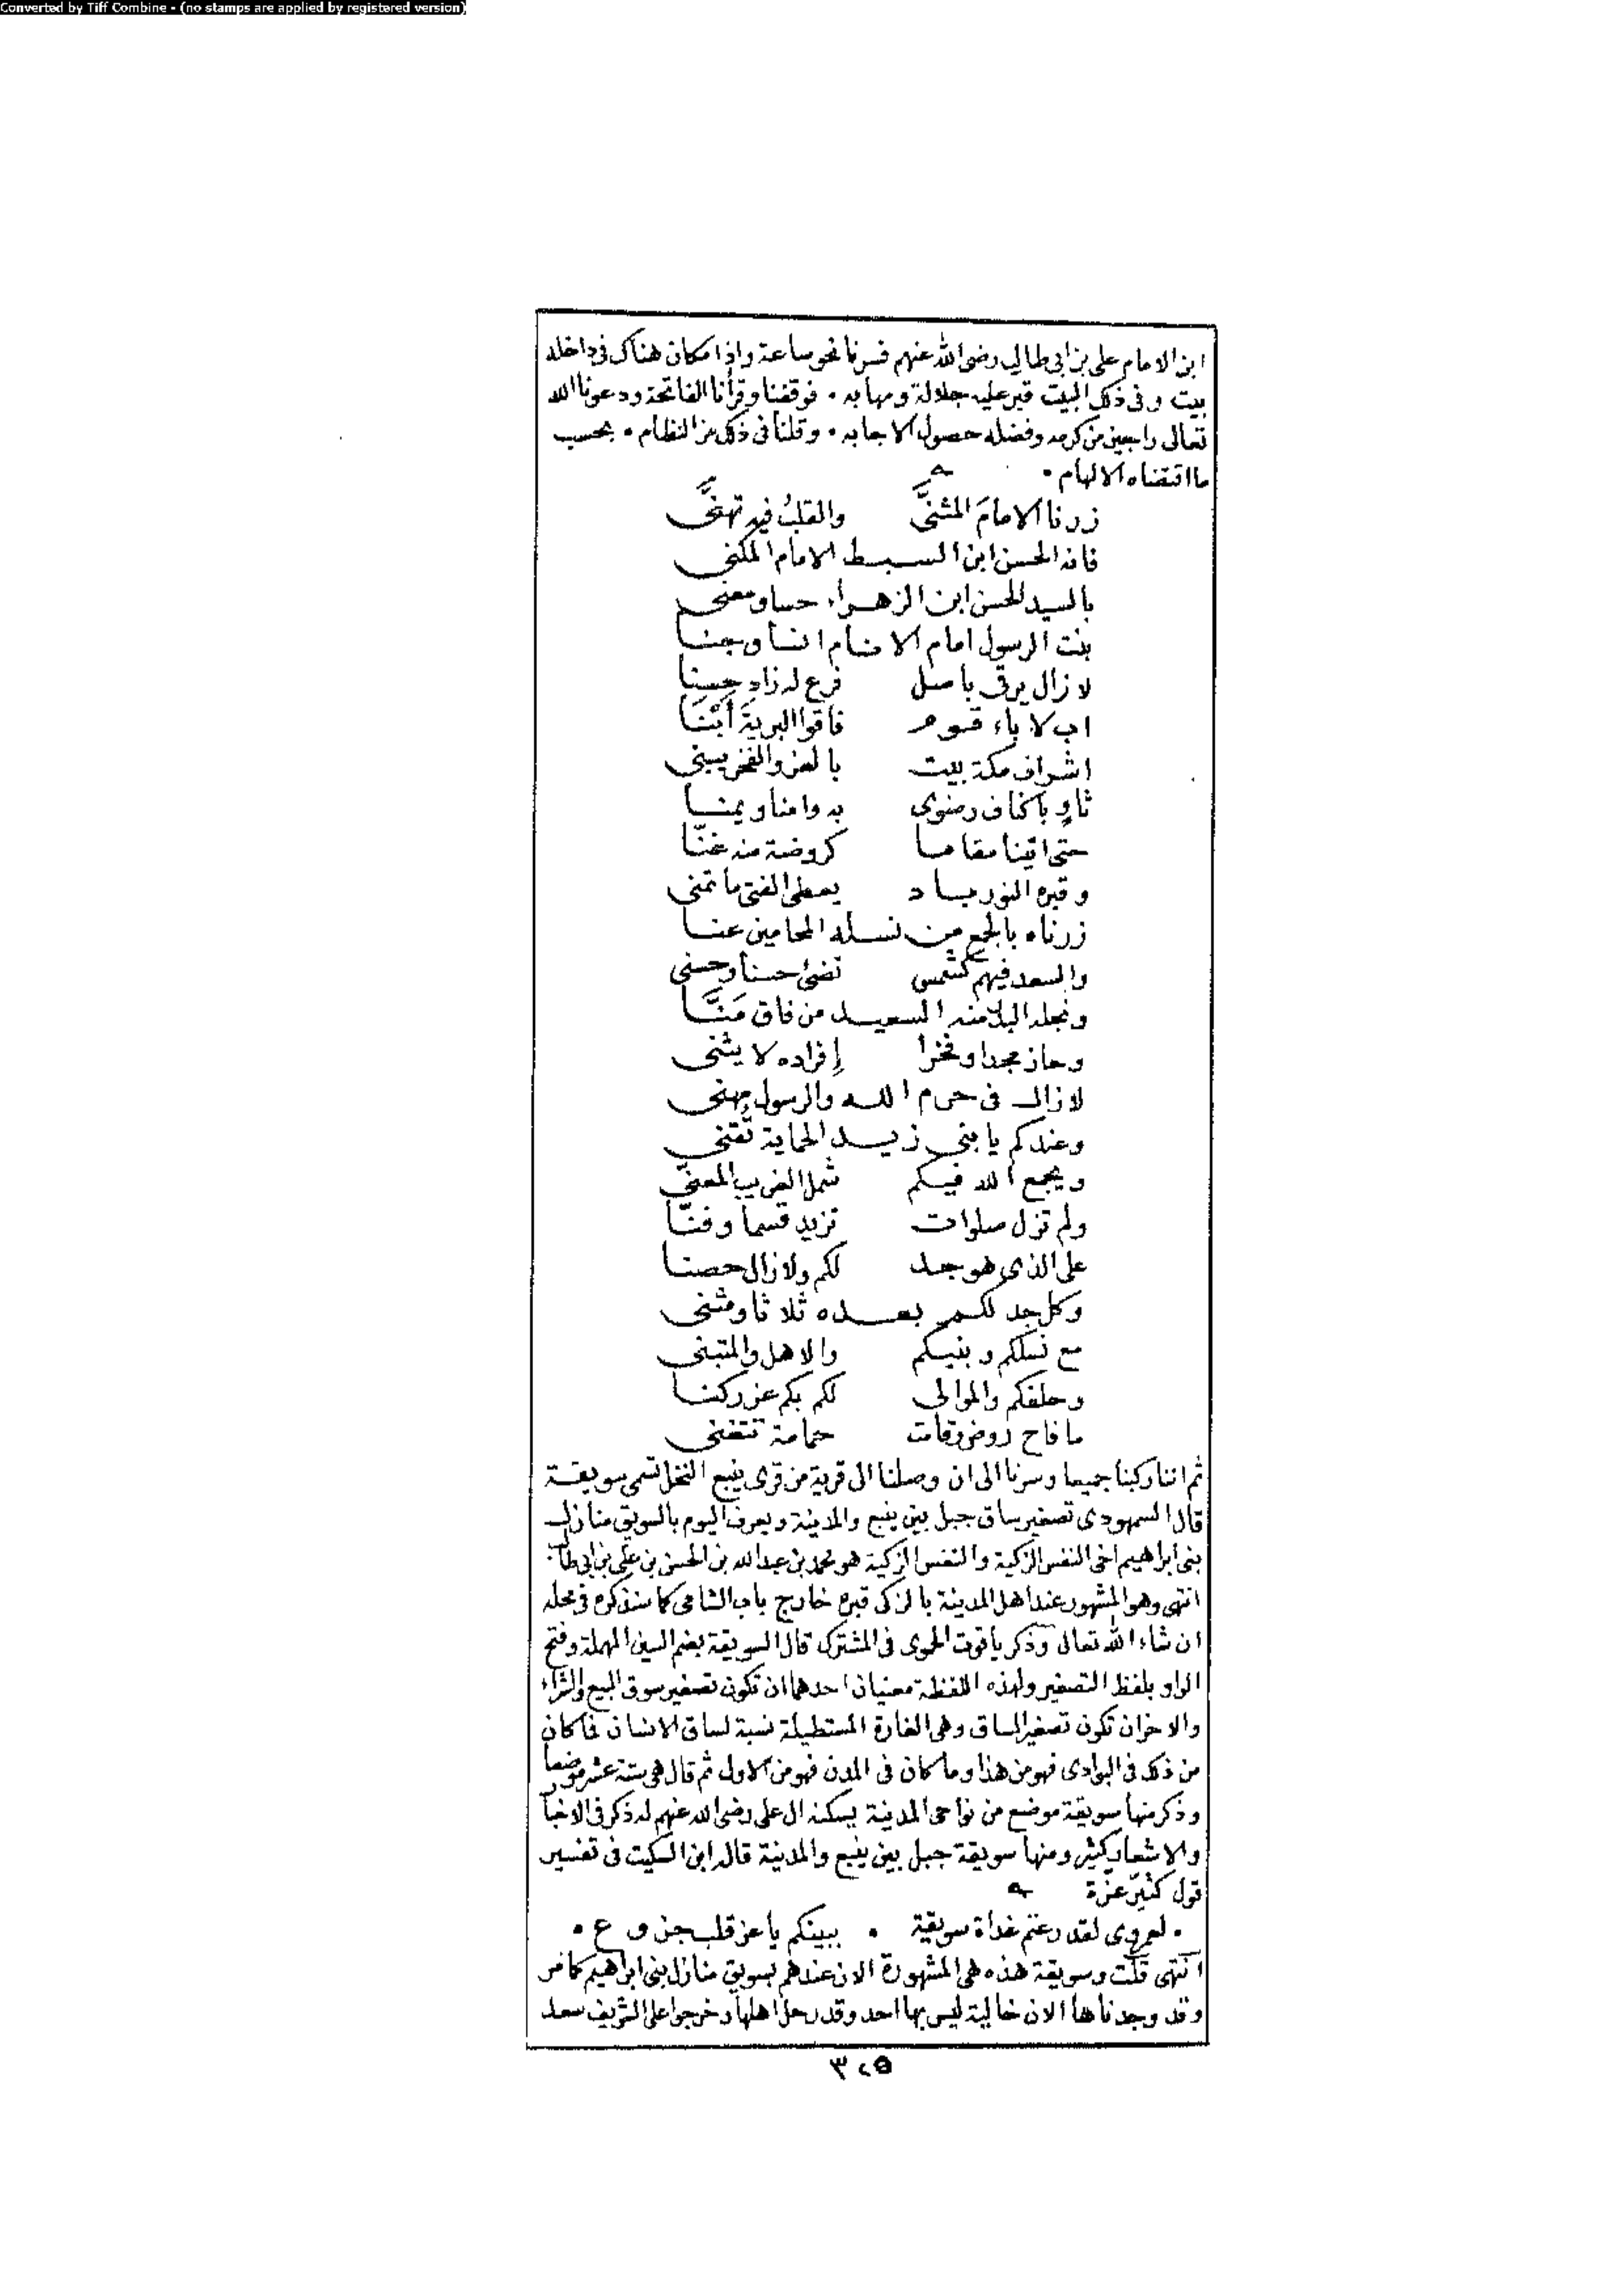 Converted by Tiff Combine - (no stamps are applied by registered version)
ابن الامام على بن ابى طالب رضى الله عنهم فسرنا نحو ساعة واذا مكان هناك فى داخله
بيت وفى ذلك البيت قبر عليه جلالة ومهابه ٠ فوقفنا وقرأنا الفاتحة ودعونا الله
تعالى راجين من كرمه وفضله حصول الاجابه ٠ وقلنا فى ذلك من النظام ٠ بحسب
ما اقتضاه الالهام ٠
زرنا الامامَ المثنَّى والقلبُ فيه تهنَّى
فانه الحسن ابن السبط الامام المكنى
بالسيد الحسن ابن الزهراء حسا ومعنى
بنت الرسول امام الانام انسا وجنا
لازال يرقى باصل فرع له زاد حسنا
اب لاباء قوم فاقوا البريةَ أبْنَا
اشراف مكة بيت بالعز والفخر يبنى
ثاوٍ باكناف رضوى به وامنا ويمنا
حتى اتينا مقاما كروضة منه غنّا
وقبره النور باد يعطى الفتى ما تمنى
زرناه بالجمع من نسله المحامين عنا
والسعد فيهم كشمس تضئ حسنا وحسنى
ونجله البدر منه السعيد من فاق مَنَّا
وحاز مجدا وفخرا إفراده لا يثنى
لازال فى حرم الله والرسول يهنى
وعندكم يا بنى زيد الحماية تُقتنى
ويجمع الله فيكم شمل الغريب المعنّى
ولم تزل صلوات تزيد قسما وفنّا
على الذى هو جد لكم ولازال حصنا
وكل جد لكم بعده ثلاثا ومثنى
مع نسلكم وبنيكم والاهل والمتبنى
وحلفكم والموالى لكم بكم عز ركنا
ما فاح روض وقامت حمامة تتغنى
ثم اننا ركبنا جميعا وسرنا الى ان وصلنا الى قرية من قرى ينبع النخل تسمى سويقة
قال السمهودى تصغير ساق جبل بين ينبع والمدينة ويعرف اليوم بالسويق منازل
بنى ابراهيم اخى النفس الزكية والنفس الزكية هو محمد بن عبد الله بن الحسن بن على بن ابى طالب
انتهى وهو المشهور عند اهل المدينة بالزكى قبره خارج باب الشامى كما سنذكره فى محله
ان شاء الله تعالى وذكر ياقوت الحموى فى المشترك قال السويقة بضم السين المهملة وفتح
الواو بلفظ التصغير ولهذه اللفظة معنيان احدهما ان تكون تصغير سوق البيع والشراء
والاخر ان تكون تصغير الساق وهى القارة المستطيلة نسبة لساق الانسان فما كان
من ذلك فى البوادى فهو من هذا وما كان فى المدن فهو من الاول ثم قال هى ستة عشر موضعا
وذكر منها سويقة موضع من نواحى المدينة يسكنه ال على رضى الله عنهم له ذكر فى الاخبا
والاشعار كثير ومنها سويقة جبل بين ينبع والمدينة قال ابن السكيت فى تفسير
قول كثيّر عزة
٠ لعمرى لقد رعتم غداة سويقة ٠ ببينكم يا عز قلب جزوع ٠
انتهى قلت وسويقة هذه هى المشهورة الان عندهم بسويق منازل بنى ابراهيم كما مر
وقد وجدناها الان خالية ليس بها احد وقد رحل اهلها وخرجوا على الشريف سعد
٣٢٥